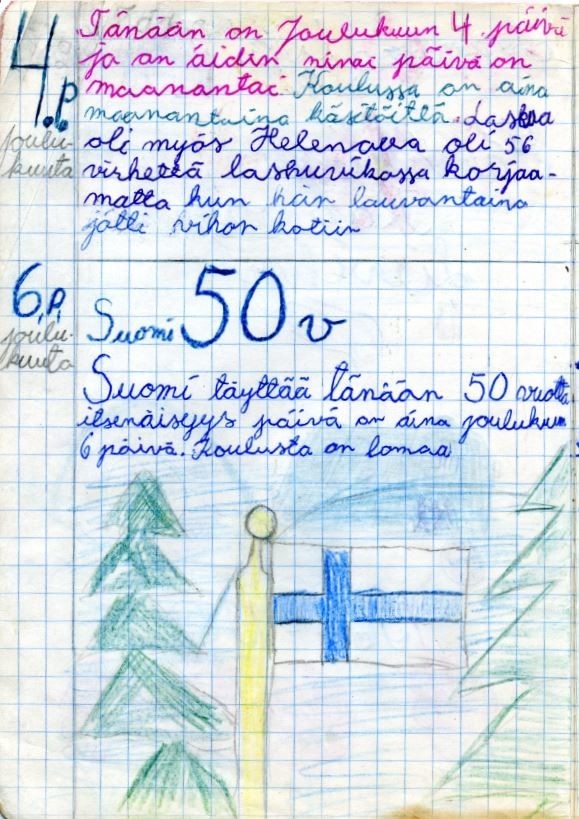 4.p
joulu-
kuuta
Tänään on Joulukuun 4. päivä
ja on äidin nimi päivä on
maanantai. Koulussa on aina
maanantaina käsitöittä. Laskua
oli myös Helenalla oli 56
virhettä laskuvikossa korjaa-
matta kun hän lauvantaina
jätti vihon kotiin
6.p.
joulu-
kuuta
Suomi 50 v
Suomi täyttää tänään 50 vuotta
itsenäisyys päivä on aina joulukuun
6 päivä. Koulusta on lomaa